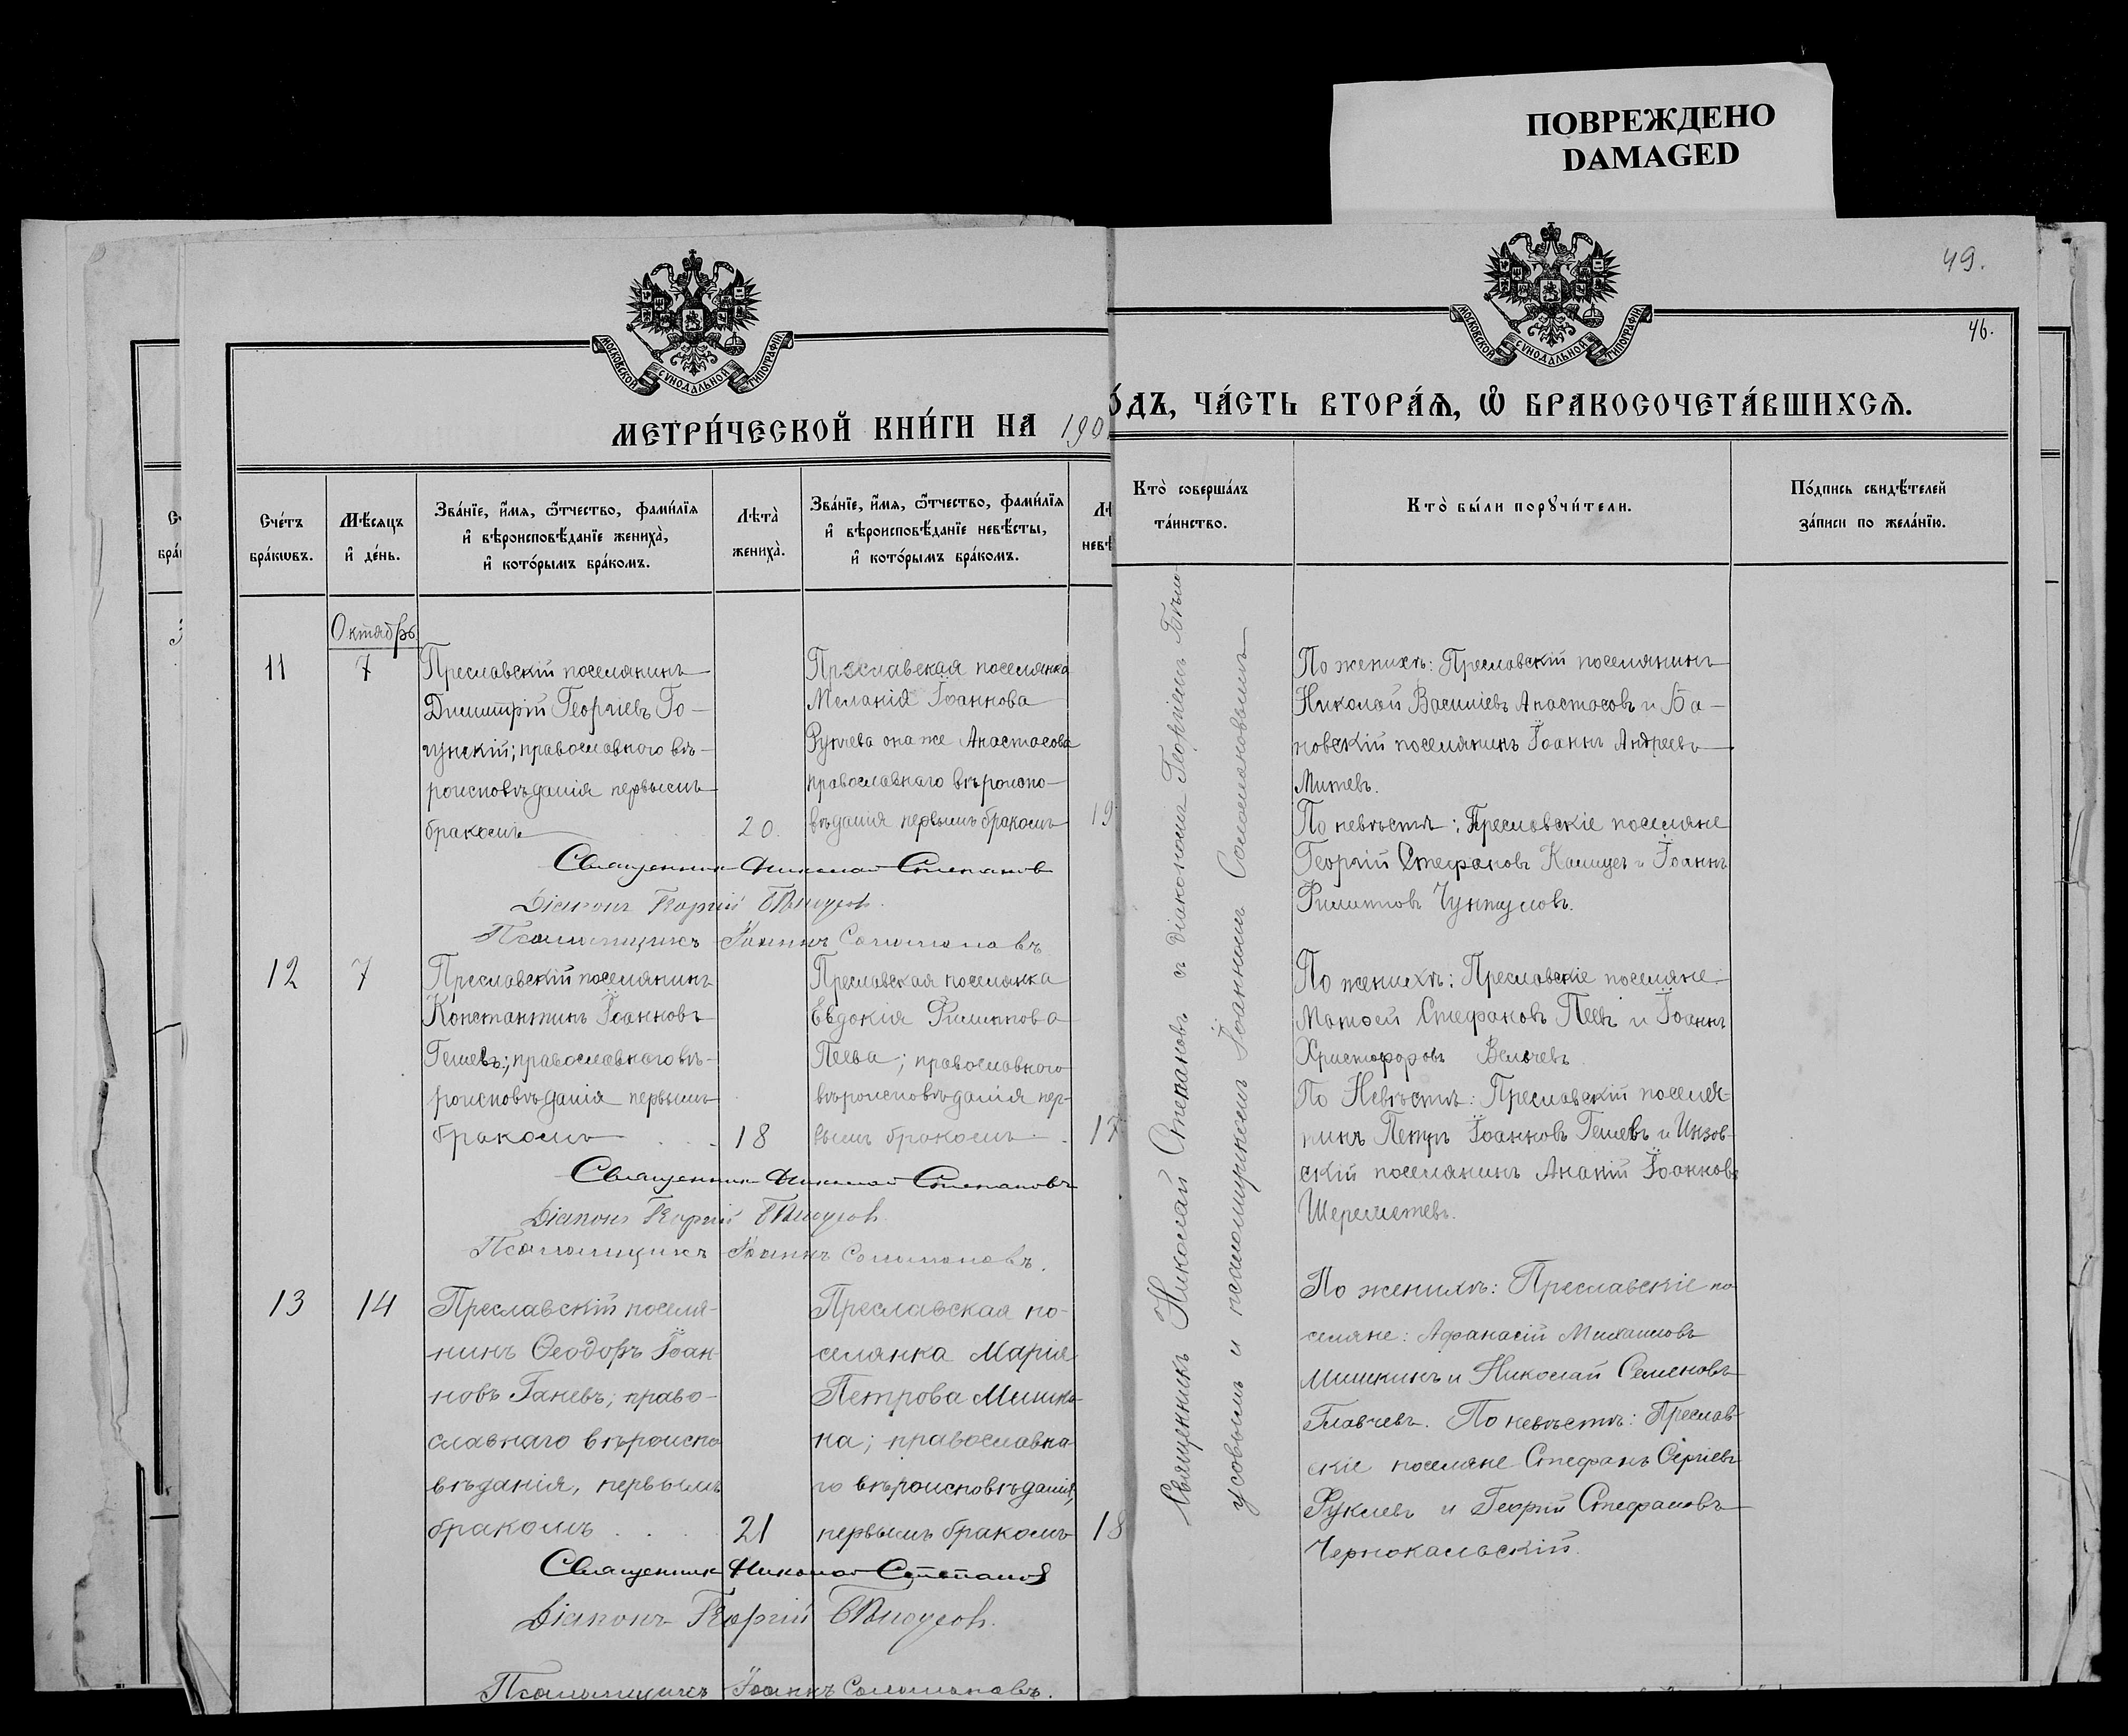 ПОВРЕЖДЕНО
DAMAGED
49.
46.
МОСКОВСКОЙ СѴНОДАЛЬНОЙ ТИПОГРАФІИ
МОСКОВСКОЙ СѴНОДАЛЬНОЙ ТИПОГРАФІИ
МЕТРИ́ЧЕСКОЙ КНИ́ГИ НА 190
О́ДЪ, ЧА́СТЬ ВТОРА́Ѧ, Ѽ БРАКОСОЧЕТА́ВШИХСѦ.
Сче́тъ
бра́кѡвъ.
Мѣ́сѧцъ
и҆ де́нь.
Зва́нїе, и҆́мѧ, ѻ҆́тчество, фами́лїѧ
и҆ вѣроисповѣ́данїе жениха̀,
и҆ кото́рымъ бра́комъ.
Лѣта̀
жениха̀.
Зва́нїе, и҆́мѧ, ѻ҆́тчество, фами́лїѧ
и҆ вѣроисповѣ́данїе невѣ́сты,
и҆ кото́рымъ бра́комъ.
Лѣ
невѣ
Кто̀ соверша́лъ
та́инство.
Кто̀ бы́ли порꙋчи́тели.
По́дпись свидѣ́телей
за́писи по жела́нїю.
Октябрь
11
7
Преславскій поселянинъ
Димитрій Георгіевъ Го-
гунскій; православного вѣ-
роисповѣданія первымъ
бракомъ
20.
Преславская поселянка
Меланія Іоаннова
Руклева она же Анастасова
православнаго вѣроиспо-
вѣданія первымъ бракомъ
19
По женихѣ: Преславскій поселянинъ
Николай Василіевъ Анастасовъ и Ба-
новскій поселянинъ Іоаннъ Андреевъ
Митевъ.
По невѣстѣ: Преславскіе поселяне
Георгій Стефановъ и Іоаннъ
Филипповъ
Священник Николай Степанов
Діаконъ Георгій Бѣлоусов.
Псаломщикъ Іоаннъ Соломоновъ
12
7
Преславскій поселянинъ
Константинъ Іоанновъ
Гешевъ; православного вѣ-
роисповѣданія первымъ
бракомъ
18
Преславская поселянка
Евдокія Филиппова
Пеева; православного
вѣроисповѣданія пер-
вымъ бракомъ
17
По женихѣ: Преславскіе поселяне:
Матѳей Стефановъ Пеевъ и Іоаннъ
Христофоровъ Велчевъ.
По Невѣстѣ: Преславскій поселя-
нинъ Петръ Іоанновъ Гешевъ и Инзов-
скій поселянинъ Ананій Іоанновъ
Шереметевъ.
Священник Николай Степановъ
Діаконъ Георгій Бѣлоусов.
Псаломщикъ Іоаннъ Соломоновъ.
13
14
Преславскій поселя-
нинъ Ѳеодоръ Іоан-
новъ Ганевъ; право-
славнаго вѣроиспо
вѣданія, первымъ
бракомъ
21
Преславская по-
селянка Марія
Петрова Мишки-
на; православна-
го вѣроисповѣданія,
первымъ бракомъ
18
По женихѣ: Преславскіе по
селяне: Афанасій Михаиловъ
Мишкинъ и Николай Семеновъ
Главчевъ. По невѣстѣ: Преслав-
скіе поселяне Стефанъ Сергіевъ
Руклевъ и Георгій Стефановъ
Чернокальскій.
Священник Николай Степанов
Діаконъ Георгій Бѣлоусов.
Псаломщикъ Іоаннъ Соломоновъ.
Священникъ Николай Степановъ съ Діакономъ Георгіемъ Бѣло-
усовымъ и псаломщикомъ Іоанномъ Соломоновымъ